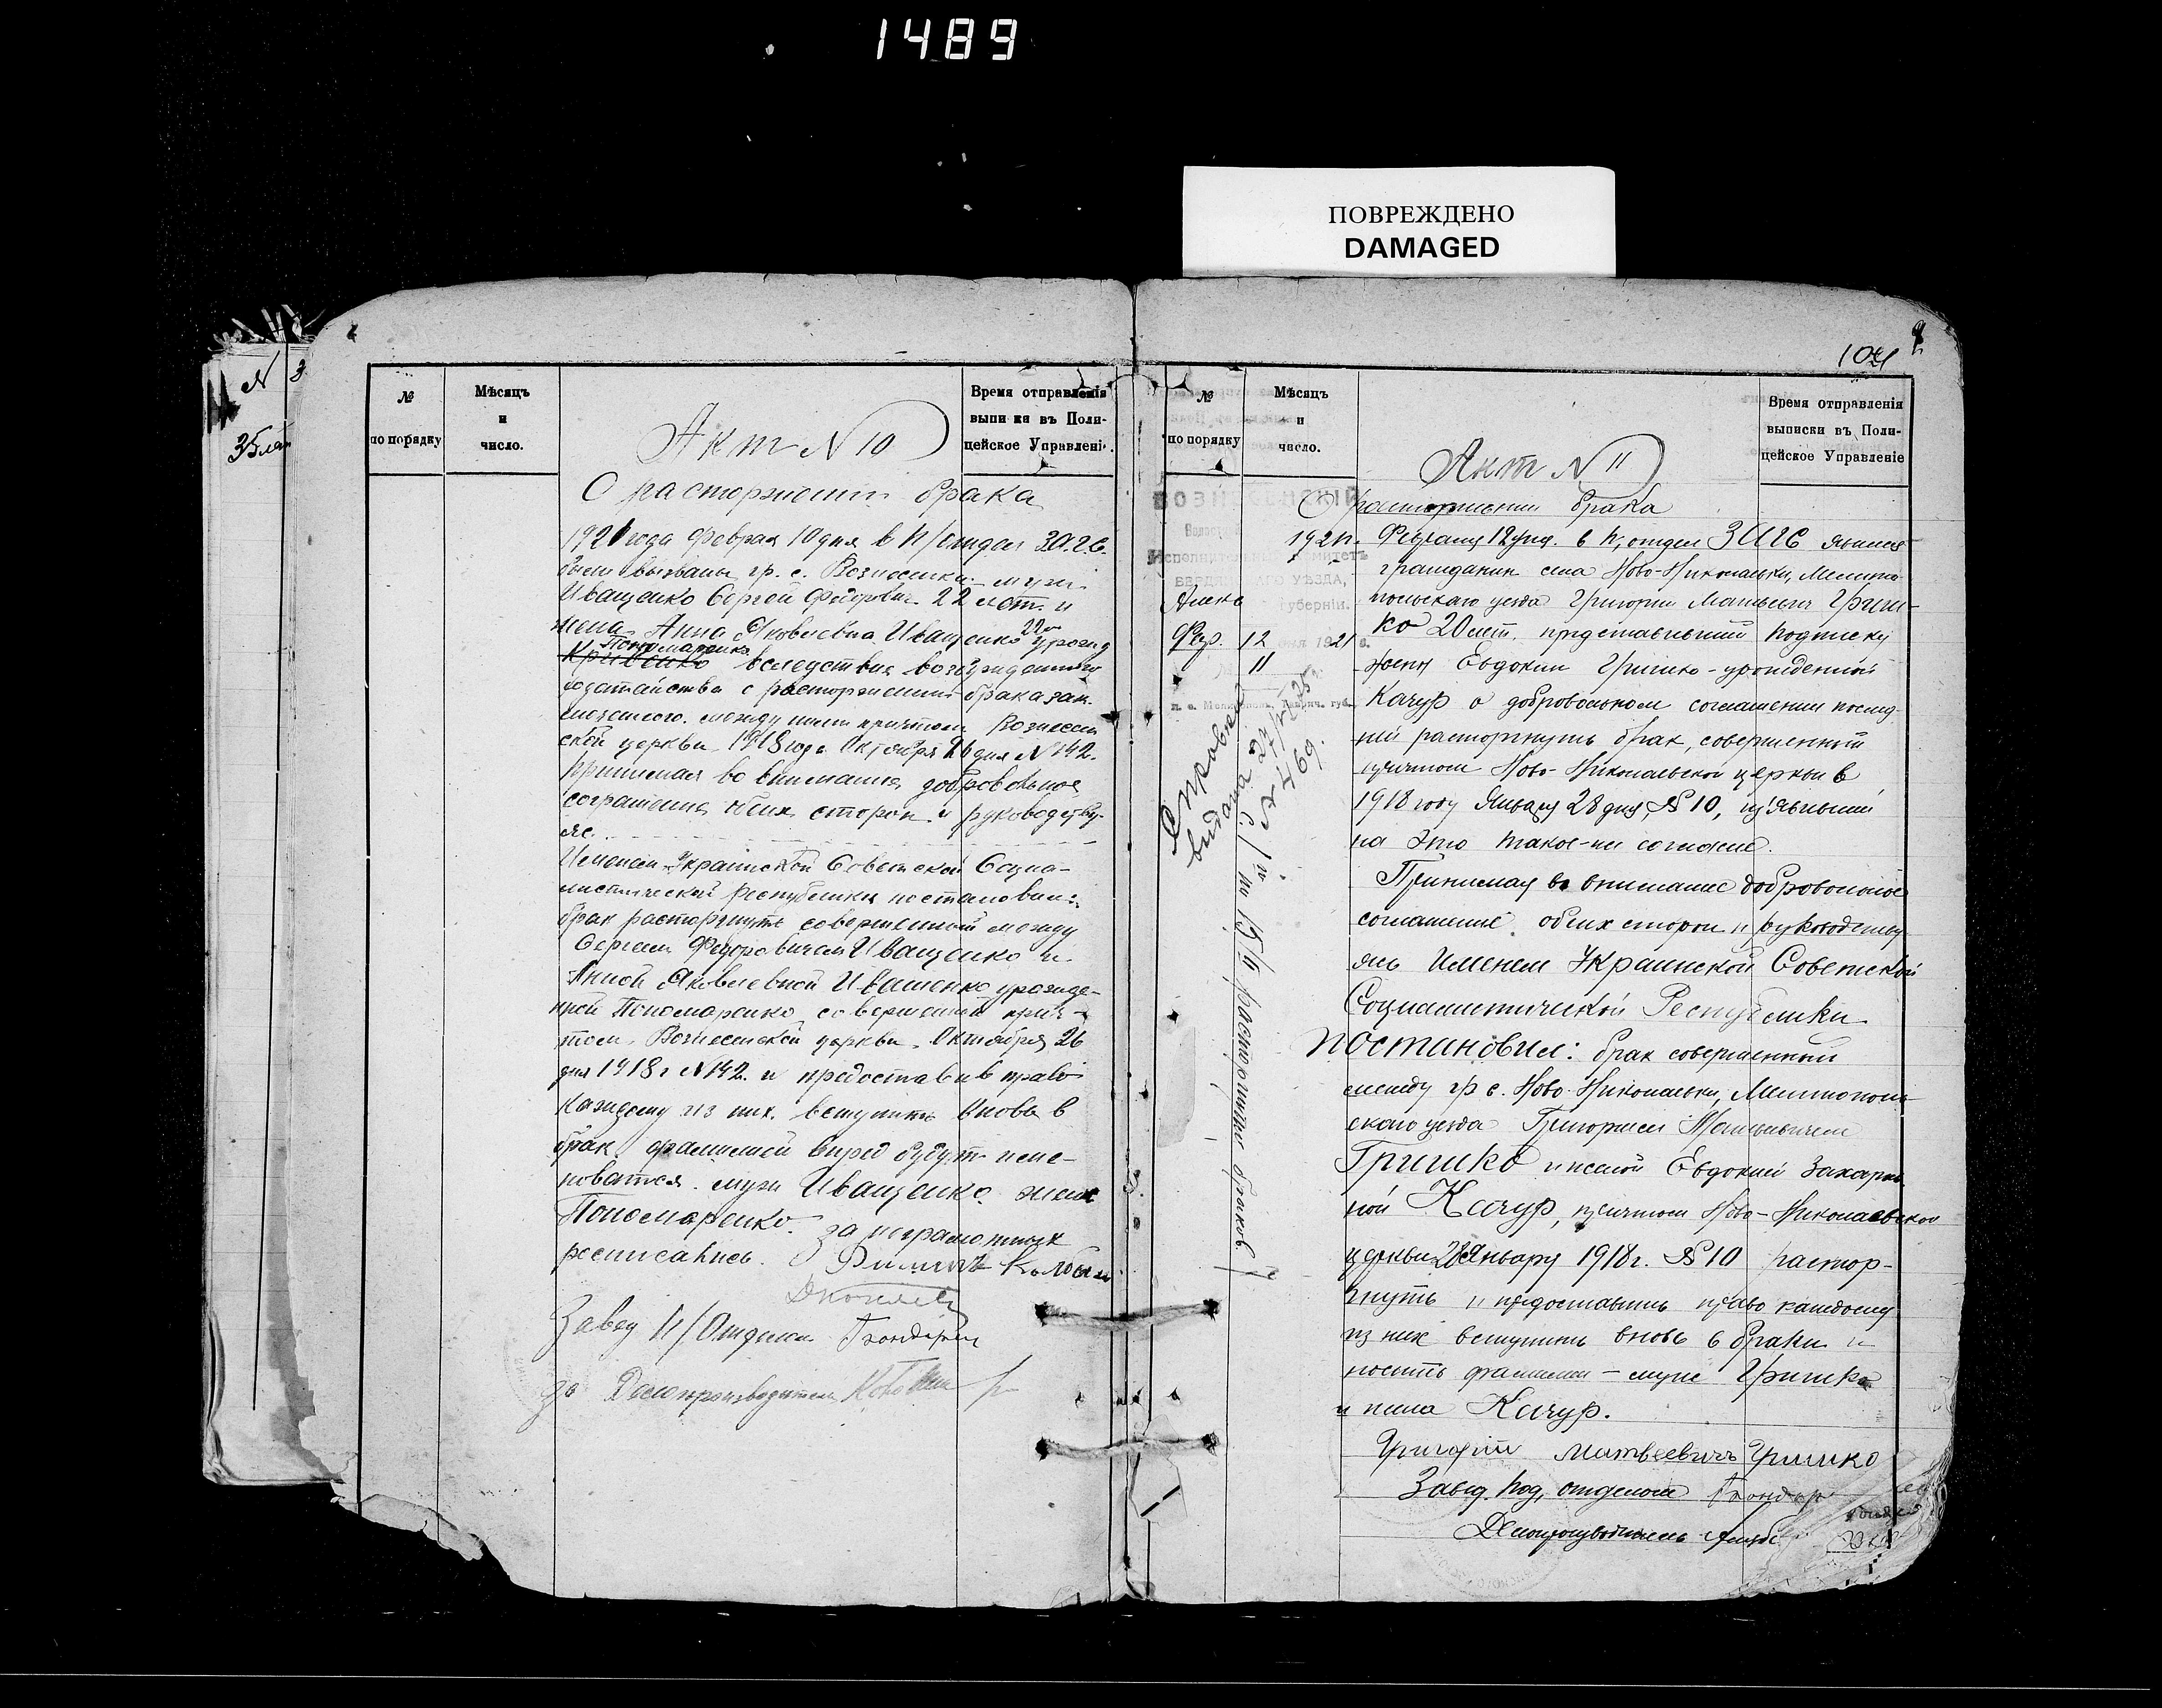 1489
ПОВРЕЖДЕНО
DAMAGED
N 3
№
по порядку
Мѣсяцъ
и
число.
Время отправленія
выписки въ Поли-
цейское Управленіе.
Акт N 10
О расторжении брака
1921 года Февраля 10 дня в п/отдел З.А.Г.С.
были вызваны гр. с. Вознесенки муж
Иващенко Сергей Федорович 22 лет. и
жена Анна Яковлевна Иващенко 22 л урожд
Пономаренко
Кривенко вследствие возбужденного
ходатайства о расторжении брака зак-
люченного между ними причтом Вознесен
ской церкви 1918 года Октября 26 дня N 142.
Принимая во внимание добровольное
соглашение обеих сторон и руководству-
ясь
Именем Украинской Советской Социа-
листической республики постановил:
брак расторгнуть совершенный между
Сергеем Федоровичем Иващенко и
Анной Яковлевной Иващенко урожде-
нной Пономаренко совершенный прич-
том Вознесенской церкви Октября 26
дня 1918 г N 142. и предоставив право
каждому из них вступить вновь в
брак фамилией впред будут имено-
ваться муж Иващенко жена
Пономаренко. за неграмотных
росписались
Завед п/Отделом Бондарен
за Делопроизводителя
104
№
по порядку
Мѣсяцъ
и
число.
Время отправленія
выписки въ Поли-
цейское Управленіе
ВОЗНЕСЕНСКІЙ
Исполнительный Комитетъ
УѢЗДА,
губерніи.
Февр. 12 дня 1921 г.
№ 11
видана
№ 469.
расторгнуто браков
Акт N 11
О расторжении брака
1921 г. Февраля 12 дня в п, отдел ЗАГС явился
гражданин села Ново-Николаевки, Мелито-
польского уезда Григорий Матвеевич Гриш-
ко 20 лет. представивший подписку
жены Евдокии Гришко - урожденной
Качур о добровольном соглашении послед
ней расторгнуть брак, совершенный
причтом Ново-Николаевской церкви в
1918 году Января 28 дня, № 10, изъявивший
на это также-ли согласие.
Принимая во внимание добровольное
соглашение обеих сторон и руководству
ясь Именем Украинской Советской
Социалистической Республики
постановил: брак совершенный
между гр с. Ново-Николаевки, Мелитополь
ского уезда Григорием Матвеевичем
Гришко и женой Евдокией Захарьи
ной Качур, причтом Ново-Николаевской
церкви 28 Января 1918 г. № 10 растор-
гнуть и предоставить право каждому
из них вступить вновь в браки и
носить фамилии - муж Гришко
и жена Качур.
Григорий Матвеевичъ Гришко
Завед. под, отделом Бондар
Делопроизводитель